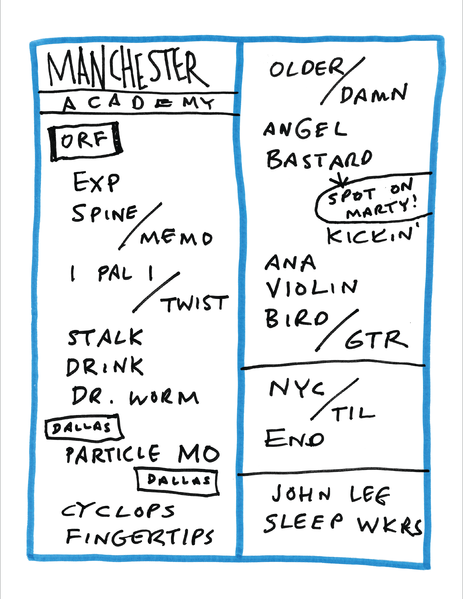 MANCHESTER
ACADEMY
ORF
EXP
SPINE/
MEMO
1 PAL 1/
TWIST
STALK
DRINK
DR. WORM
DALLAS
PARTICLE MO
DALLAS
CYCLOPS
FINGERTIPS
OLDER/
DAMN
ANGEL
BASTARD
SPOT ON
MARTY!
KICKIN'
ANA
VIOLIN
BIRD/
GTR
NYC/
TIL
END
JOHN LEE
SLEEP WKRS